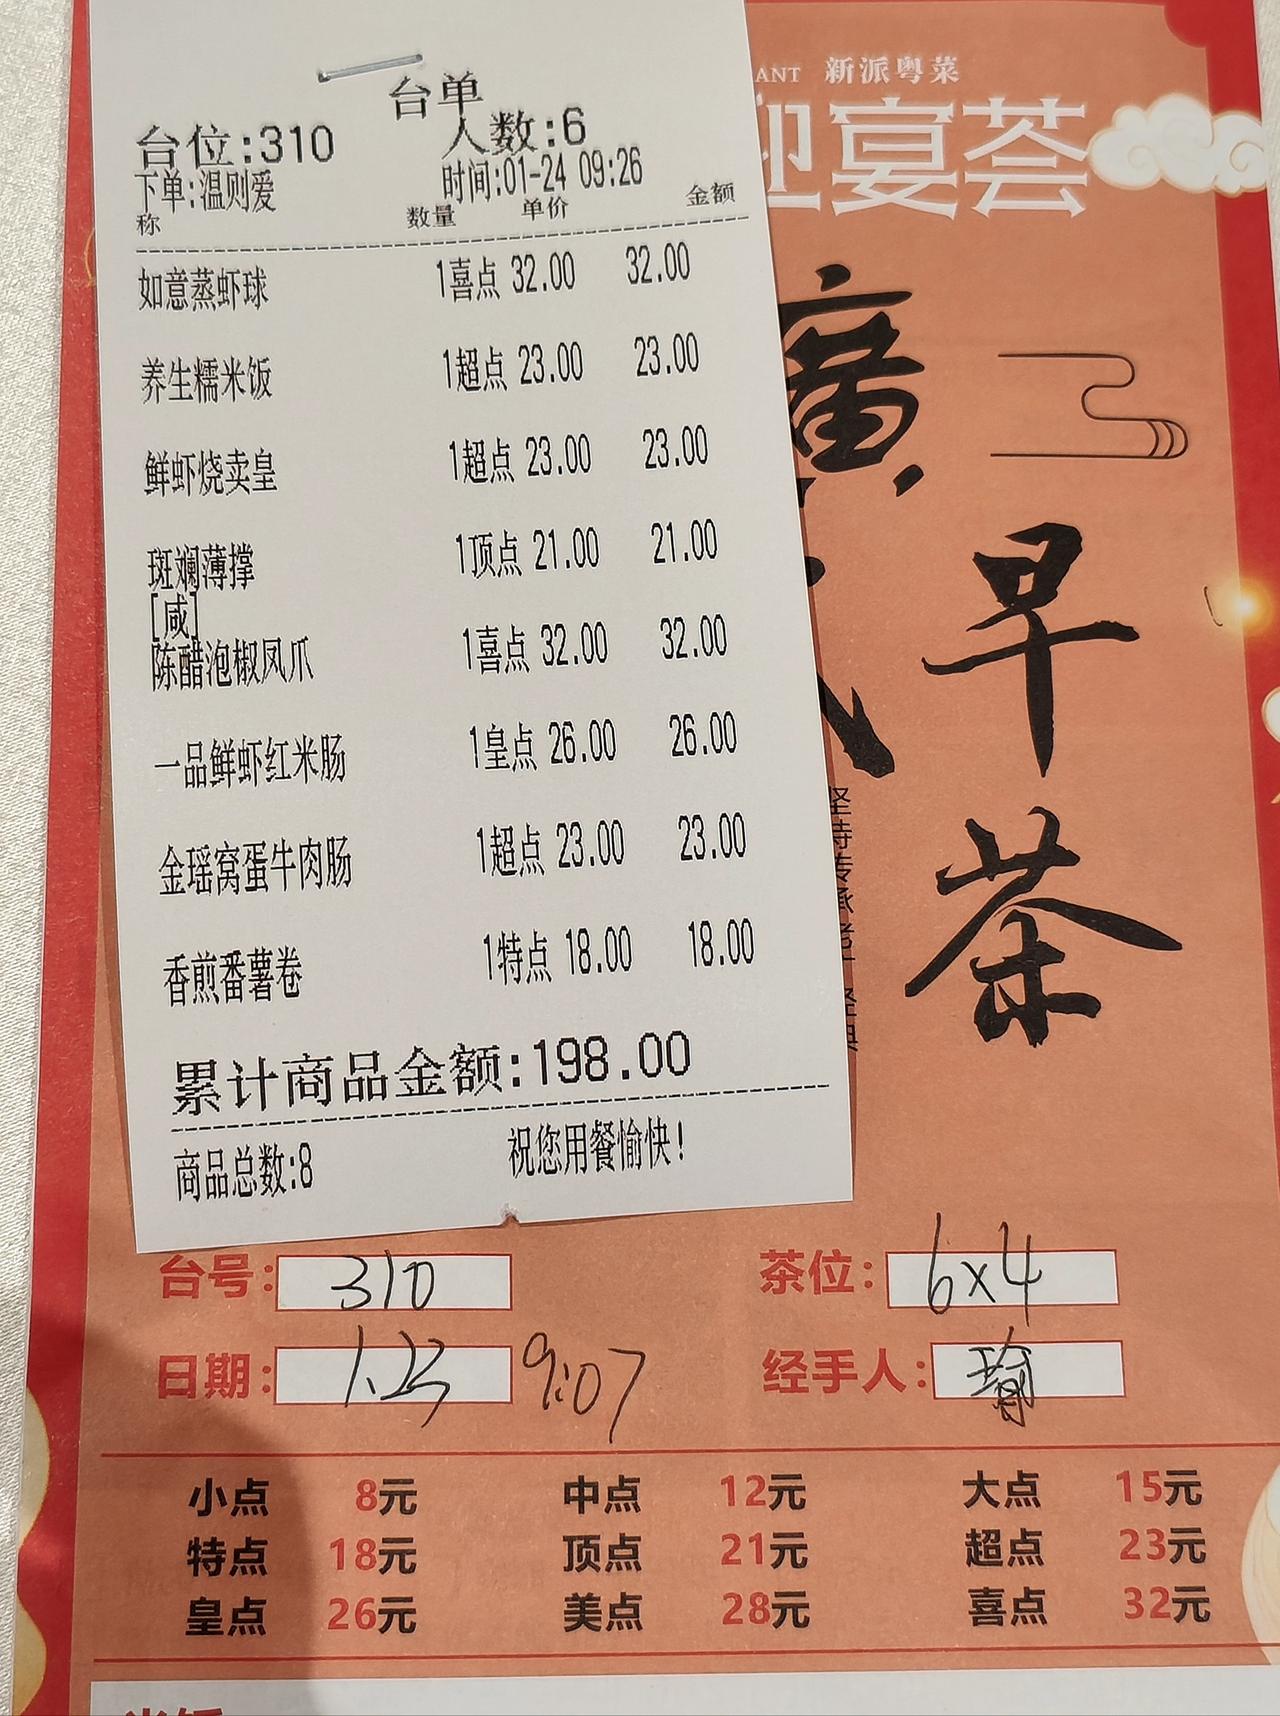 台单
台位:310 人数:6
下单:温则爱 时间:01-24 09:26
称 数量 单价 金额
如意蒸虾球 1喜点 32.00 32.00
养生糯米饭 1超点 23.00 23.00
鲜虾烧卖皇 1超点 23.00 23.00
斑斓薄撑 1顶点 21.00 21.00
[咸]
陈醋泡椒凤爪 1喜点 32.00 32.00
一品鲜虾红米肠 1皇点 26.00 26.00
金瑶窝蛋牛肉肠 1超点 23.00 23.00
香煎番薯卷 1特点 18.00 18.00
累计商品金额:198.00
商品总数:8 祝您用餐愉快!
ANT 新派粤菜
迎宴荟
廣
早茶
坚持传承
台号: 310 茶位: 6x4
日期: 1.23 9:07 经手人: 瑜
小点 8元 中点 12元 大点 15元
特点 18元 顶点 21元 超点 23元
皇点 26元 美点 28元 喜点 32元